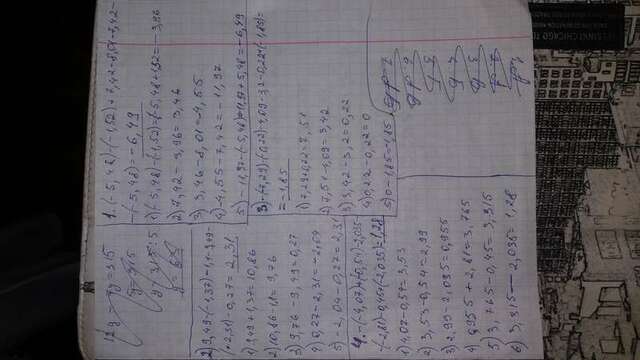 12y - 7y = 315
5y = 315
y = 315 : 5
y = 63
1. (-5,48) - (-1,52) + 7,42 - 8,01 - 7,42 -
- (-5,48) = -6,49
1) (-5,48) - (-1,52) = -5,48 + 1,52 = -3,96
2) 7,42 - 3,96 = 3,46
3) 3,46 - 8,01 = -4,55
4) -4,55 - 7,42 = -11,97
5) -11,97 - (-5,48) = -11,97 + 5,48 = -6,49
2) 9,49 - (-1,37) - 1,1 - 9,49 -
+ 2,31) - 0,27 = 2,31
1) 9,49 + 1,37 = 10,86
2) 10,86 - 1,1 = 9,76
3) 9,76 - 9,49 = 0,27
4) 0,27 - 2,31 = -2,04
5) -2,04 - 0,27 = 2,31
3. - (-7,29) - (-0,22) - 4,09 - 3,2 - 0,22 + (-1,85) =
= -1,85
1) 7,29 + 0,22 = 7,51
2) 7,51 - 4,09 = 3,42
3) 3,42 - 3,2 = 0,22
4) 0,22 - 0,22 = 0
5) 0 - 1,85 = -1,85
4. - (-4,07) + (-0,54) - 2,035 -
- (-2,81) - 0,45 + (-2,035) = 1,28
1) 4,07 - 0,54 = 3,53
2) 3,53 - 0,54 = 2,99
3) 2,99 - 2,035 = 0,955
4) 0,955 + 2,81 = 3,765
5) 3,765 - 0,45 = 3,315
6) 3,315 - 2,035 = 1,28